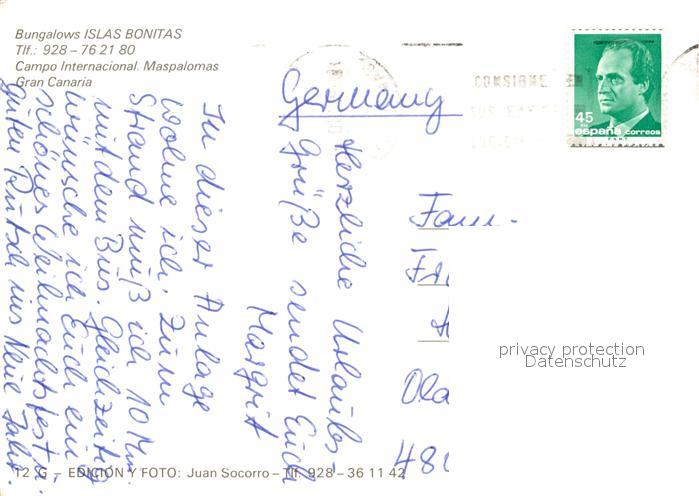 Bungalows ISLAS BONITAS
Tlf.: 928 – 76 21 80
Campo Internacional. Maspalomas
Gran Canaria
In dieser Anlage
wohne ich. Zum
Strand muß ich 10 Min
mit dem Bus. Gleichzeitig
wünsche ich Euch ein
schönes Weihnachtsfest u.
guten Rutsch ins Neue Jahr.
Herzliche Urlaubs-
grüße sendet Euch
Margrit
Germany
CONSIGNE EN
45
españa correos
F.N.M.T.
Fam.
Ola
48
privacy protection
Datenschutz
12 G – EDICION Y FOTO: Juan Socorro – Tlf. 928 – 36 11 42